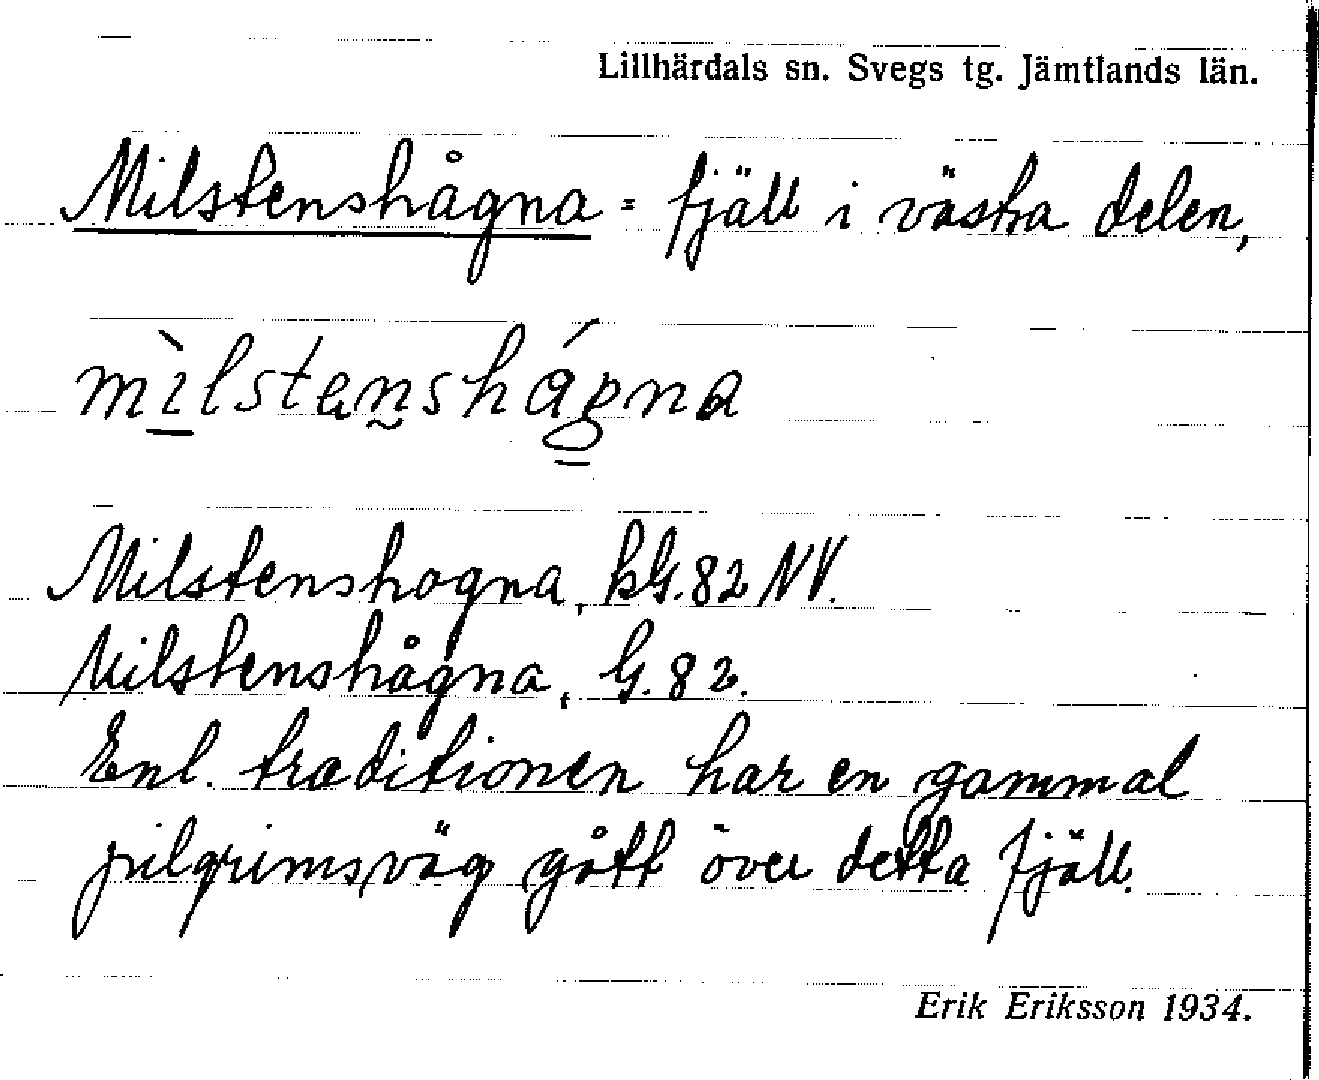 Lillhärdals sn. Svegs tg. Jämtlands län.
Milstenshågna = fjäll i västra delen,
mìlstenshágna
Milstenshogna, kG. 82 NV.
Milstenshågna, G. 82.
Enl. traditionen har en gammal
pilgrimsväg gått över detta fjäll.
Erik Eriksson 1934.